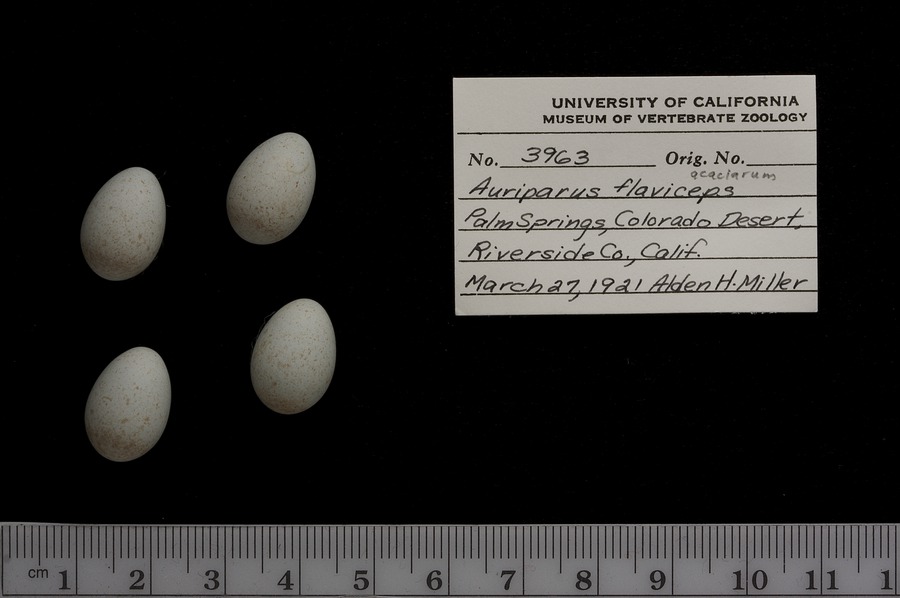 UNIVERSITY OF CALIFORNIA
MUSEUM OF VERTEBRATE ZOOLOGY
No. 3963 Orig. No.
acaciarum
Auriparus flaviceps
Palm Springs, Colorado Desert,
Riverside Co., Calif.
March 27, 1921 Alden H. Miller
cm 1 2 3 4 5 6 7 8 9 10 11 1